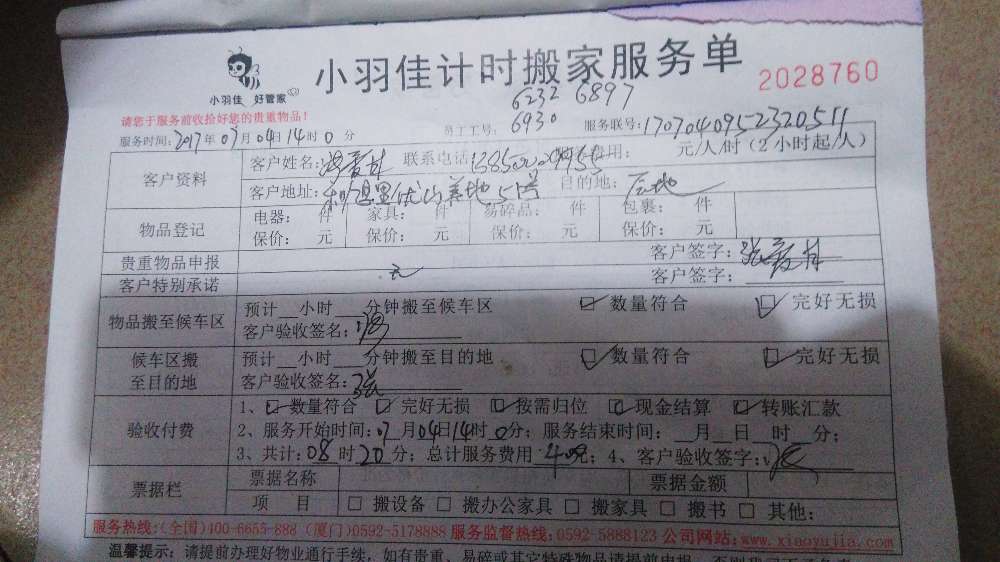 小羽佳 好管家
小羽佳计时搬家服务单
2028760
请您于服务前收拾好您的贵重物品!
6232 6897
服务时间:2017年07月04日14时0分 员工工号: 6930 服务联号:1707040952320511
客户资料
客户姓名: 联系电话 费用: 元/人/时(2小时起/人)
客户地址: 目的地:
物品登记
电器: 件 家具: 件 易碎品: 件 包裹: 件
保价: 元 保价: 元 保价: 元 保价: 元
贵重物品申报 无 客户签字:
客户特别承诺 客户签字:
物品搬至候车区
预计__小时__分钟搬至候车区 数量符合 完好无损
客户验收签名:
候车区搬至目的地
预计__小时__分钟搬至目的地 数量符合 完好无损
客户验收签名:张
验收付费
1、数量符合 完好无损 按需归位 现金结算 转账汇款
2、服务开始时间:07月04日14时0分;服务结束时间:__月__日__时__分;
3、共计:08时20分;总计服务费用 元;4、客户验收签字:
票据栏
票据名称 票据金额
项 目 □ 搬设备 □ 搬办公家具 □ 搬家具 □ 搬书 □ 其他:
服务热线:(全国)400-6655-888 (厦门)0592-5178888 服务监督热线:0592-5888123 公司网站:www.xiaoyujia.com
温馨提示:请提前办理好物业通行手续,如有贵重、易碎或其它特殊物品请提前申报,